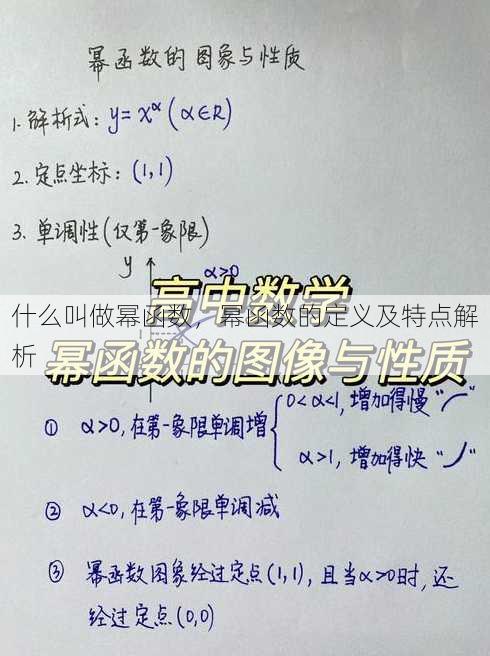 幂函数的图象与性质
1.解析式：y=x^α(α∈R)
2.定点坐标：(1,1)
3.单调性(仅第一象限)
y
α>0
高中数学
什么叫做幂函数，幂函数的定义及特点解
析
幂函数的图像与性质
① α>0,在第一象限单调增
0<α<1,增加得慢“⌒”
α>1,增加得快“ノ”
② α<0,在第一象限单调减
③ 幂函数图象经过定点(1,1),且当α>0时,还
经过定点(0,0)